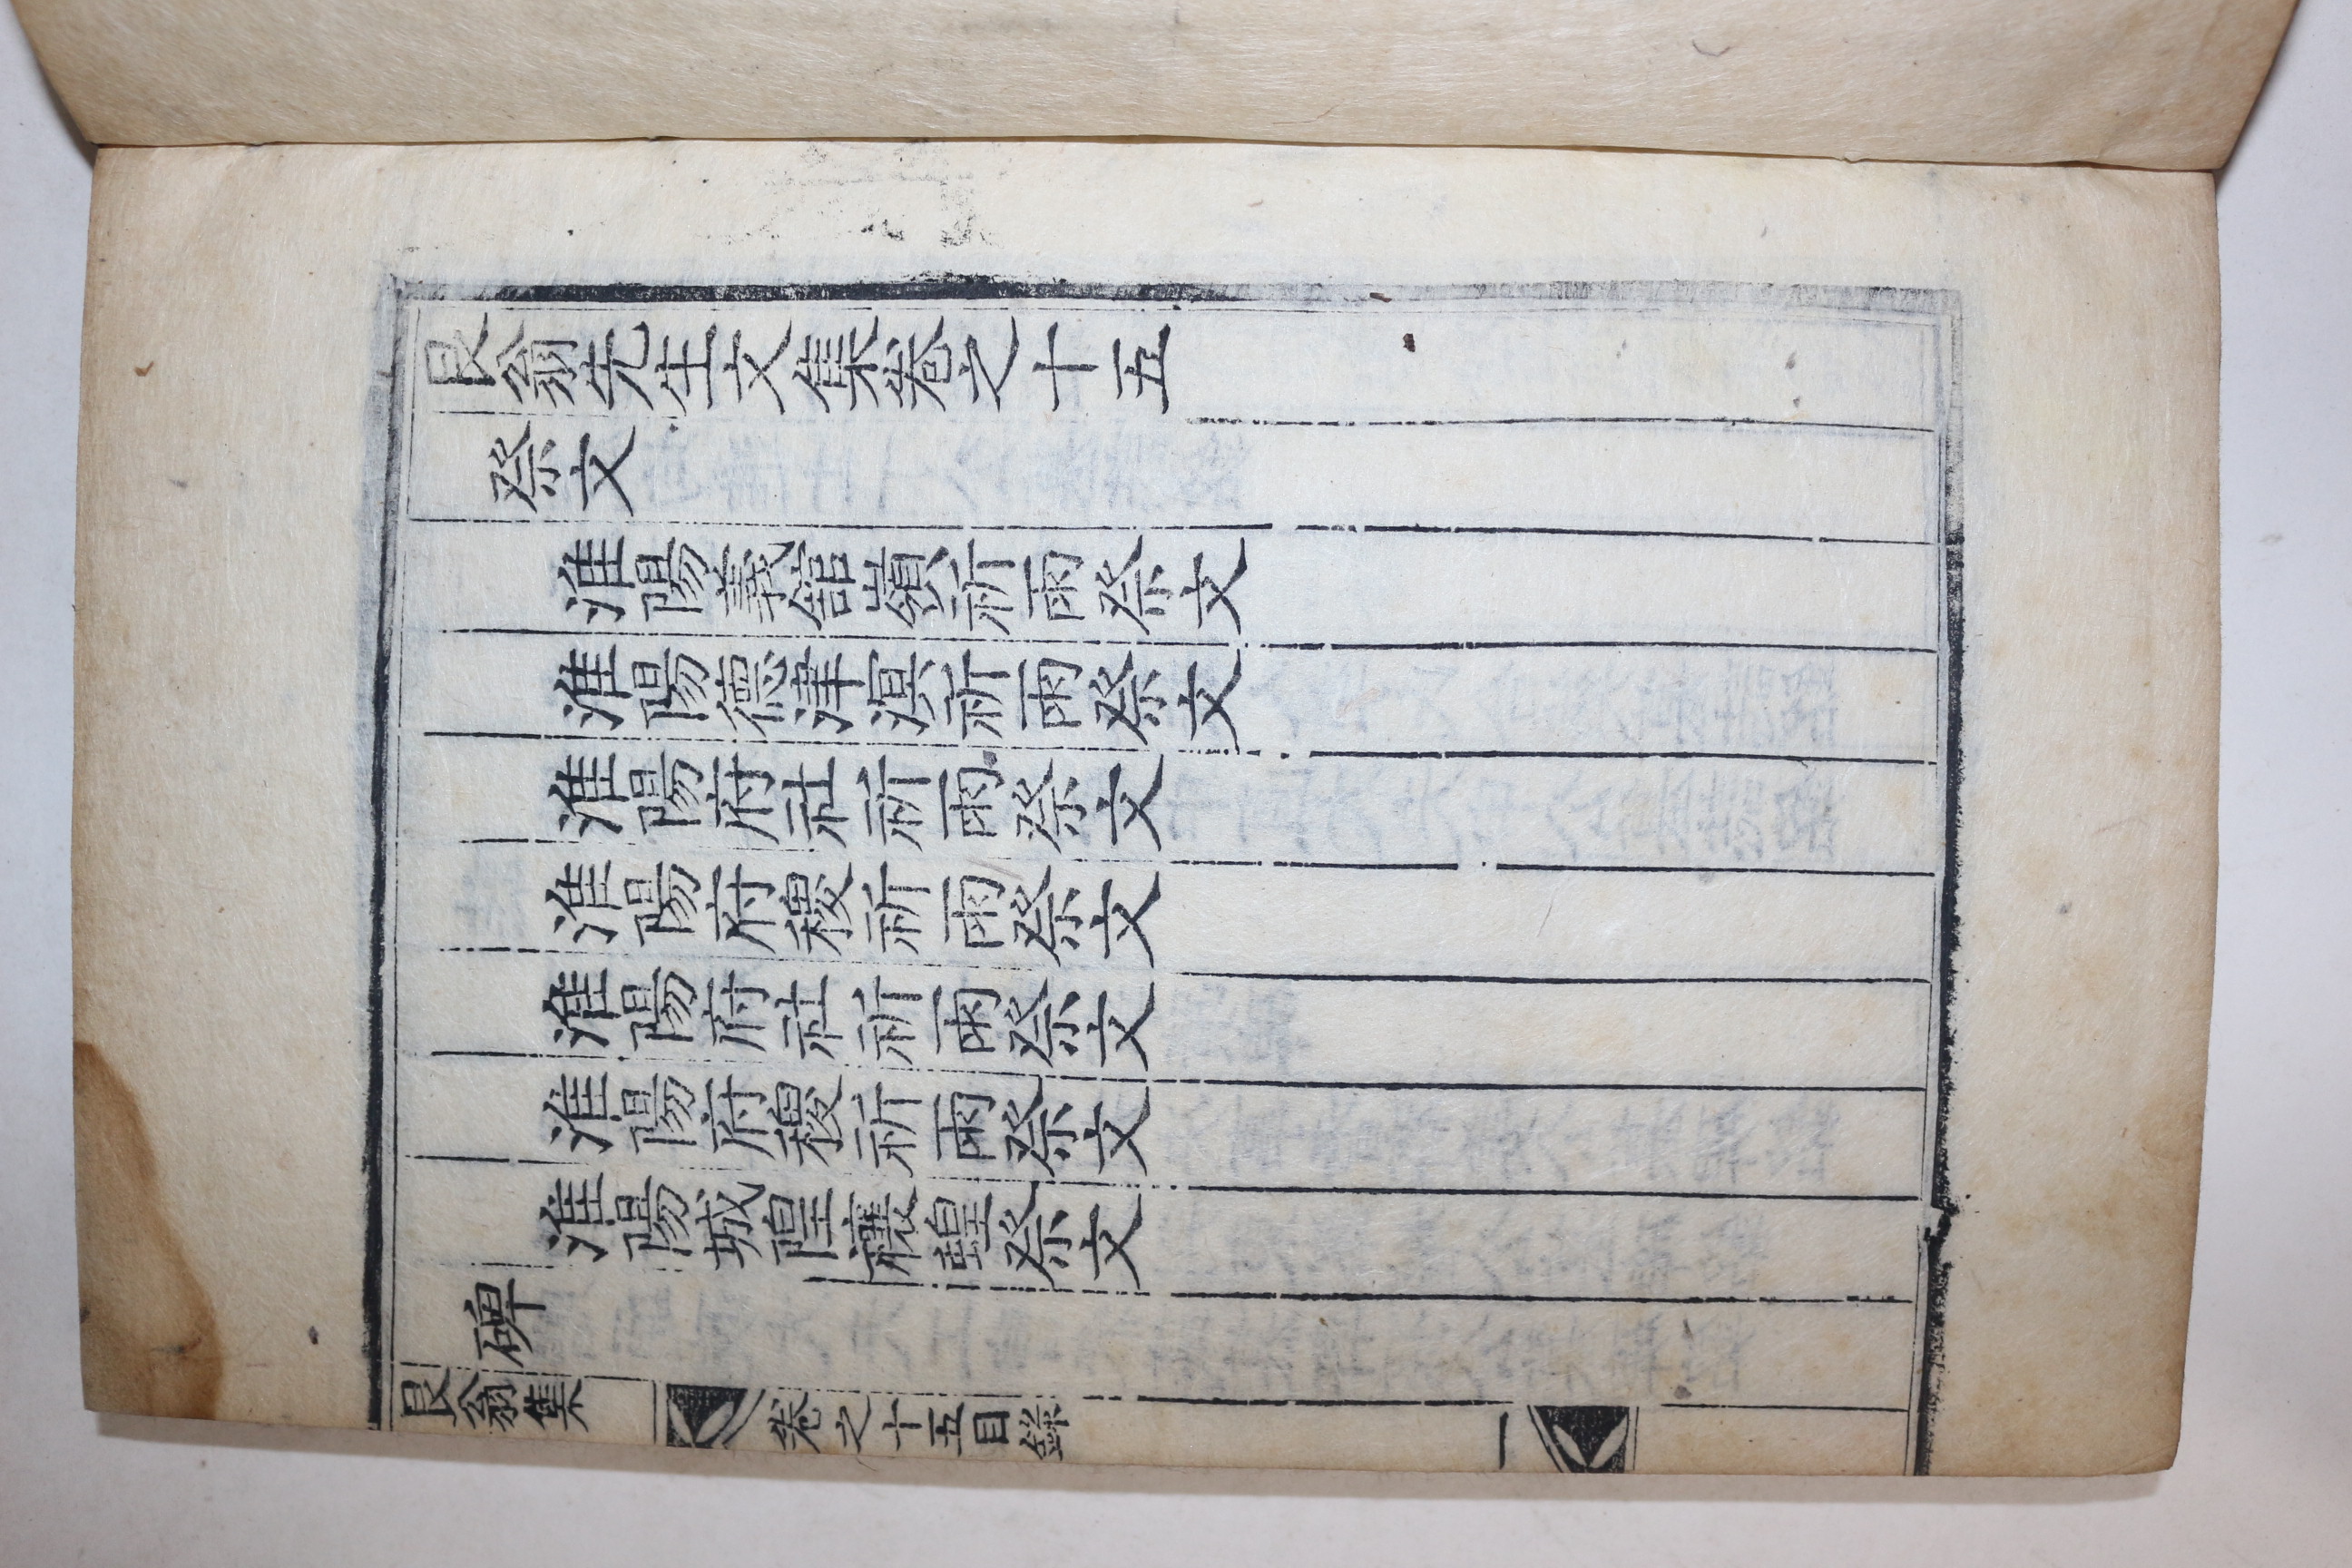 艮翁先生文集卷之十五
祭文
淮陽義舘嶺祈雨祭文
淮陽德津溟祈雨祭文
淮陽府社祈雨祭文
淮陽府稷祈雨祭文
淮陽府社祈雨祭文
淮陽府稷祈雨祭文
淮陽城隍禳蝗祭文
碑
艮翁集 卷之十五目錄 一